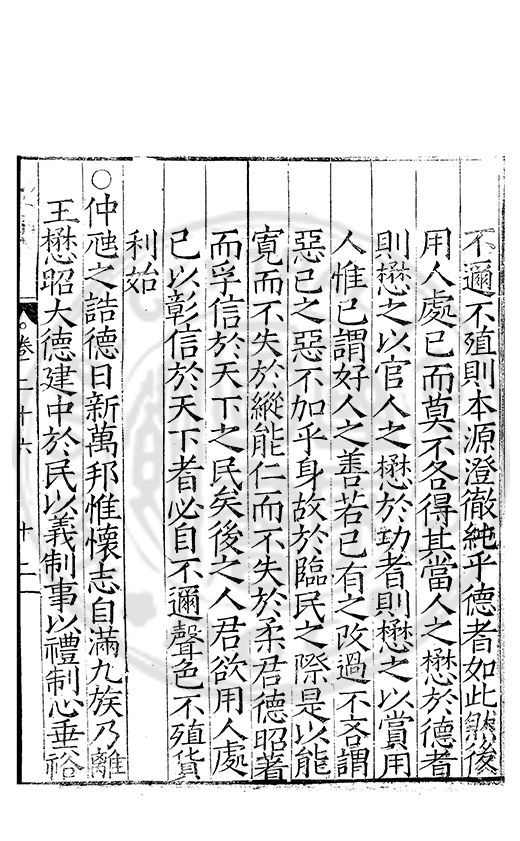 不邇不殖則本源澄徹純乎德者如此然後
用人處已而莫不各得其當人之懋於德者
則懋之以官人之懋於功者則懋之以賞用
人惟已謂好人之善若已有之改過不吝謂
惡已之惡不加乎身故於臨民之際是以能
寬而不失於縱能仁而不失於柔君德昭著
而孚信於天下之民矣後之人君欲用人處
已以彰信於天下者必自不邇聲色不殖貨
利始
○仲虺之誥德日新萬邦惟懷志自滿九族乃離
王懋昭大德建中於民以義制事以禮制心垂裕
卷二十六
十二